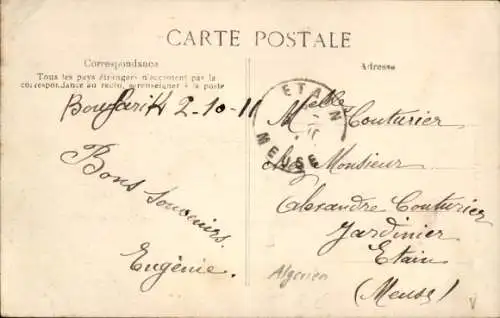 CARTE POSTALE
Correspondance
Tous les pays étrangers n'acceptent pas la
correspondance au recto, se renseigner à la poste
Boufarik 2-10-11
Bons souvenirs.
Eugénie.
Adresse
ETAIN
MEUSE
Melle Couturier
chez Monsieur
Alexandre Couturier
Jardinier
Etain
(Meuse)
Algerien